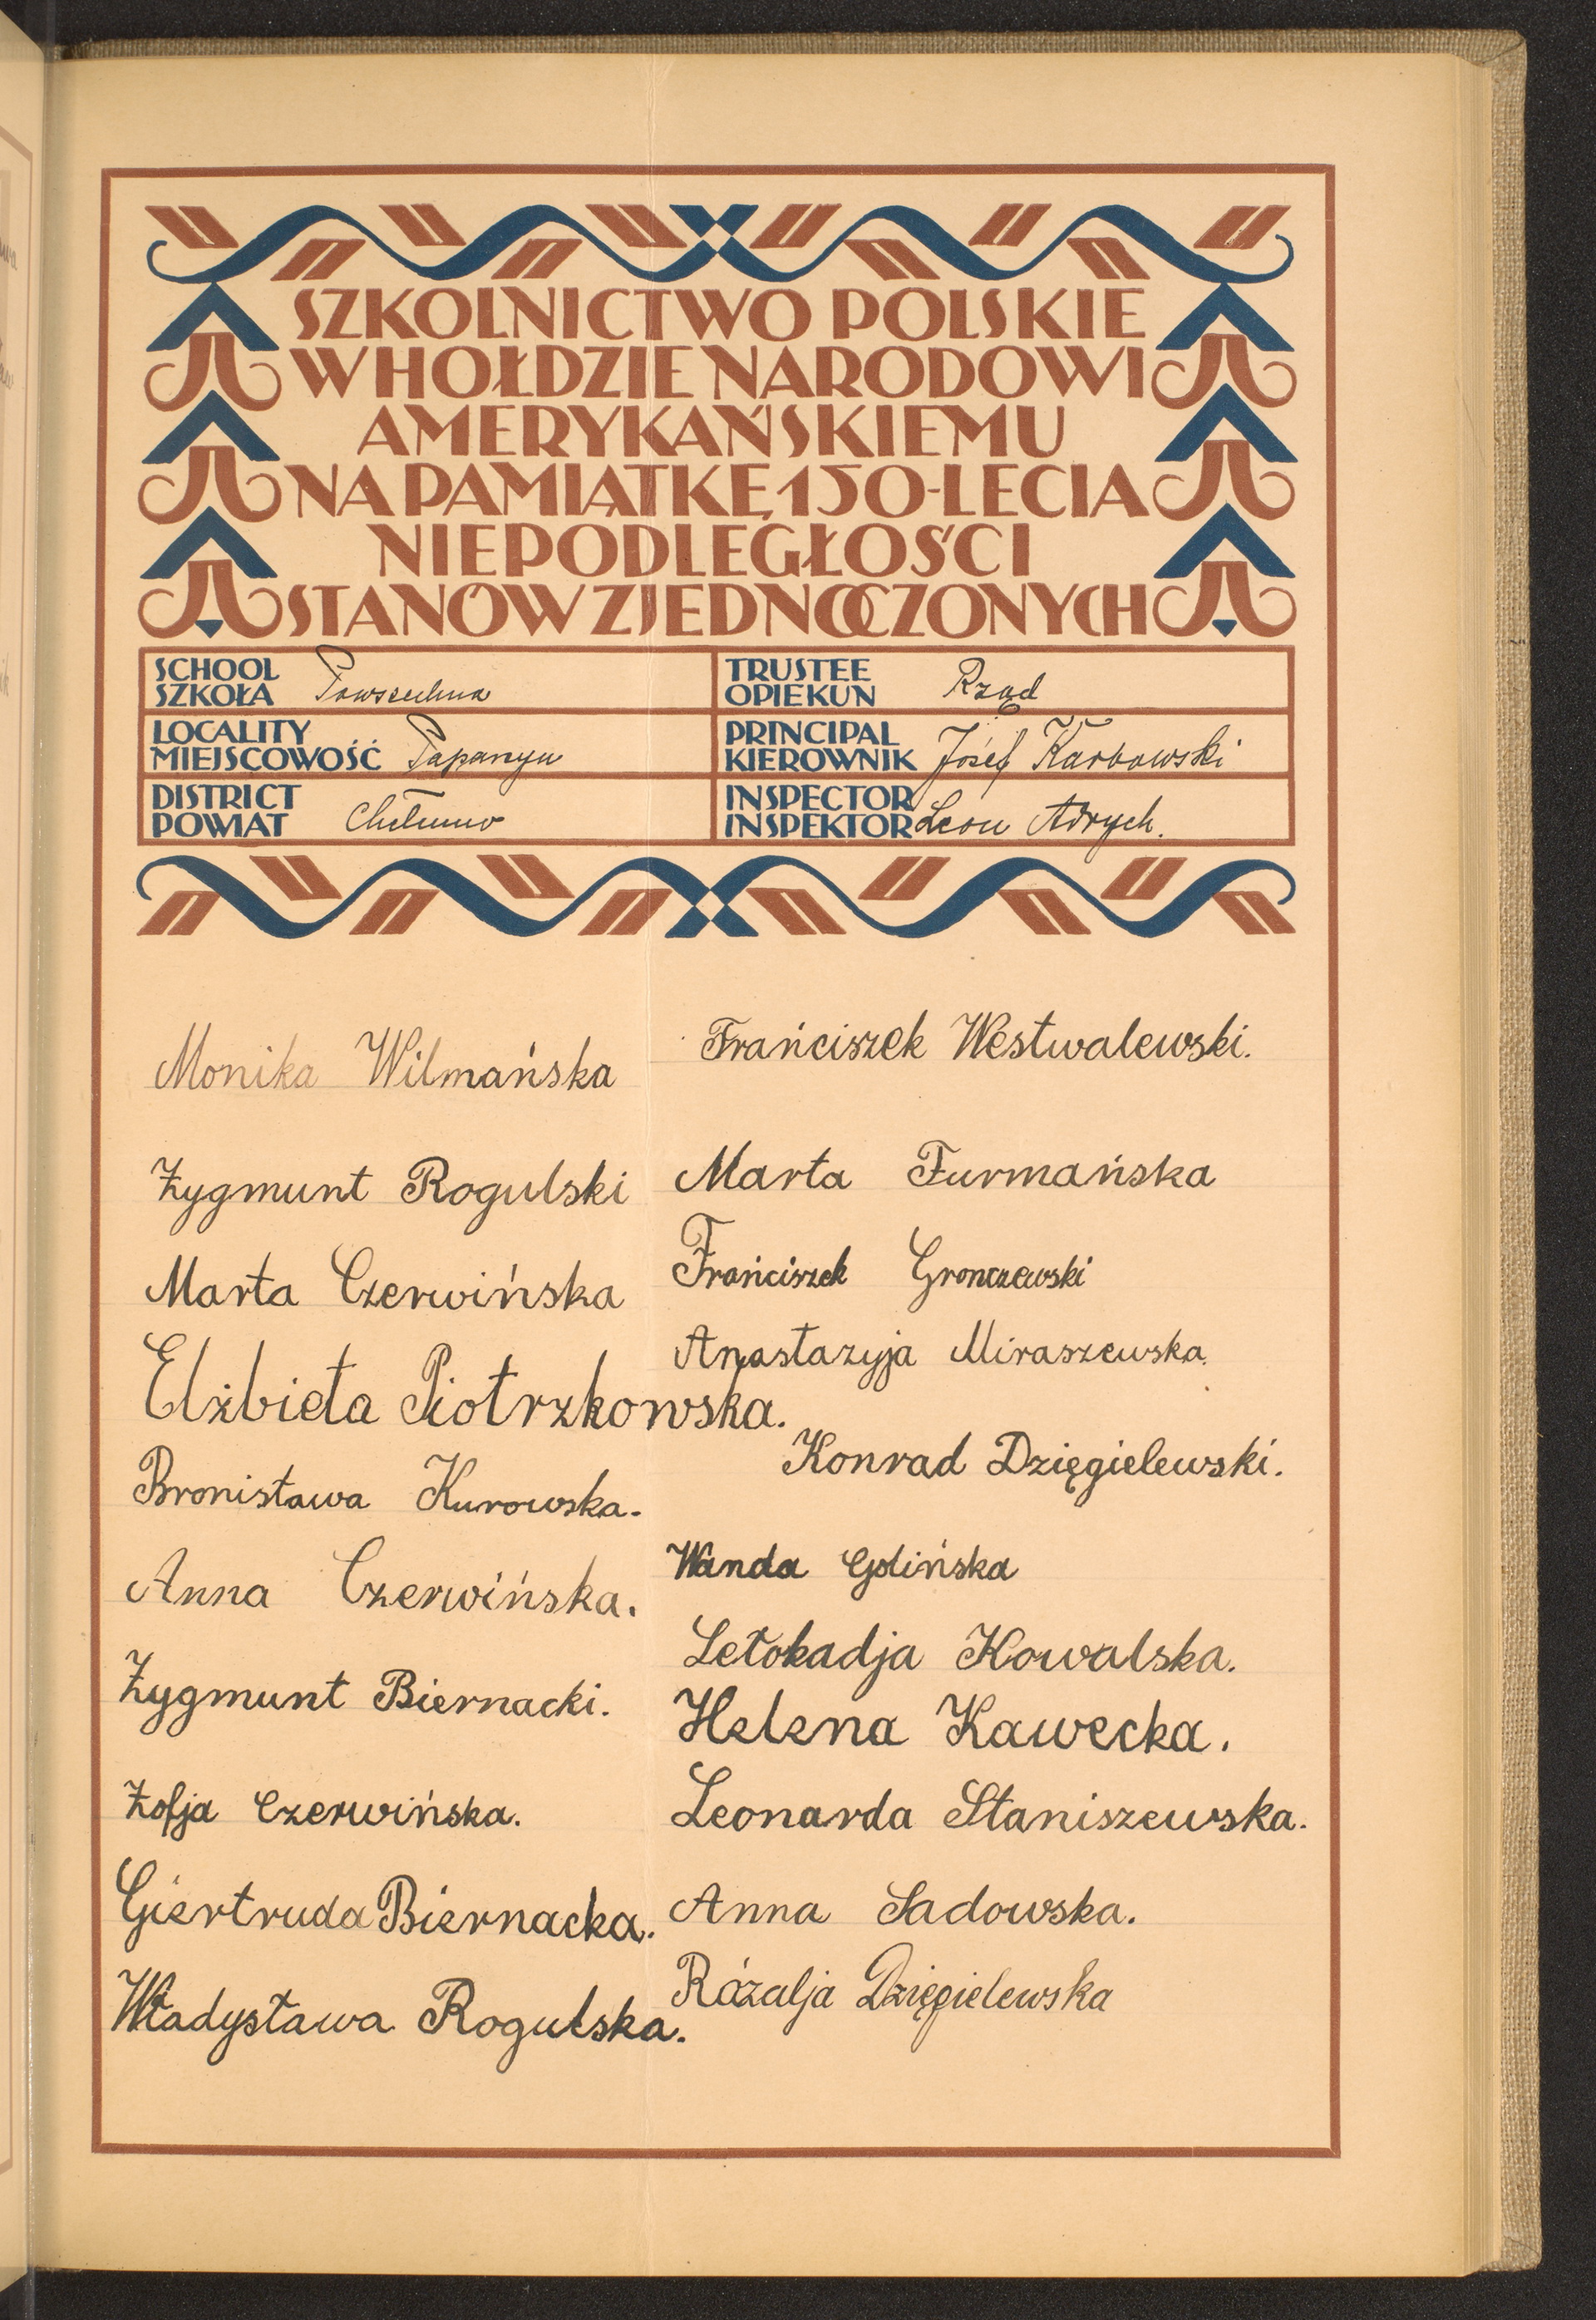 SZKOLNICTWO POLSKIE
W HOŁDZIE NARODOWI
AMERYKAŃSKIEMU
NA PAMIĄTKĘ 150-LECIA
NIEPODLEGŁOŚCI
STANÓW ZJEDNOCZONYCH
SCHOOL
SZKOŁA Powszechna
TRUSTEE
OPIEKUN Rząd
LOCALITY
MIEJSCOWOŚĆ Paparzyn
PRINCIPAL
KIEROWNIK Józef Karbowski
DISTRICT
POWIAT Chełmno
INSPECTOR
INSPEKTOR Leon Adrych.
Monika Wilmańska
Zygmunt Rogulski
Marta Czerwińska
Elżbieta Piotrzkowska.
Bronisława Kurowska.
Anna Czerwińska.
Zygmunt Biernacki.
Zofja Czerwińska.
Giertruda Biernacka.
Władysława Rogulska.
Frańciszek Westwalewski.
Marta Furmańska
Frańciszek Gronczewski
Anastazyja Miraszewska.
Konrad Dzięgielewski.
Wanda Golińska
Letokadja Kowalska.
Helena Kawecka.
Leonarda Staniszewska.
Anna Sadowska.
Rózalja Dzięgielewska